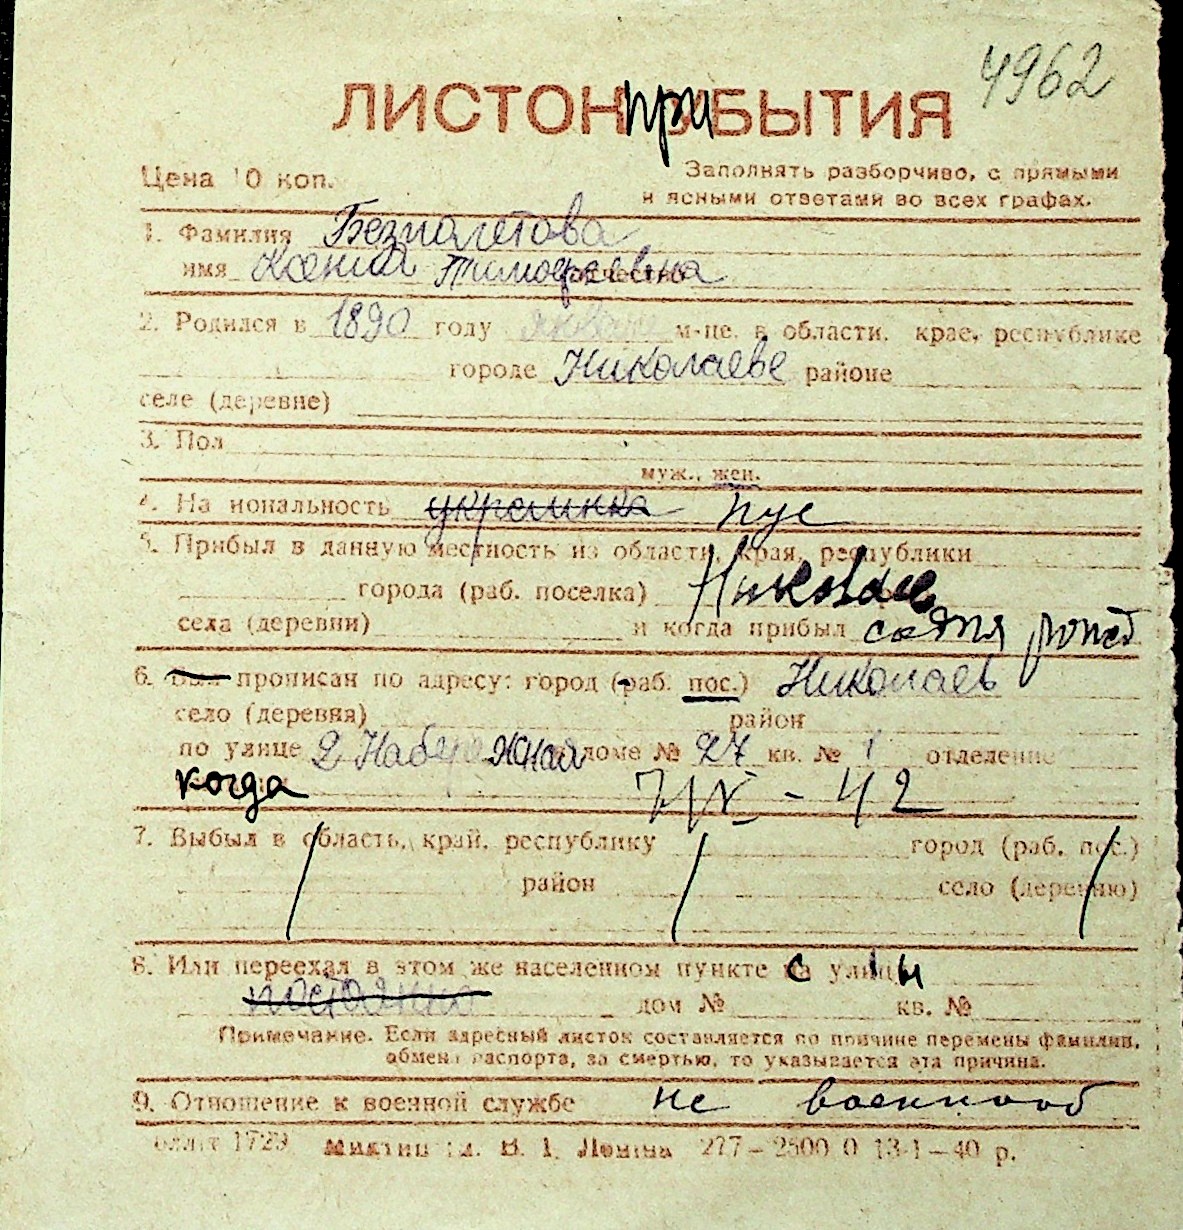 4962
ЛИСТОК ПРИБЫТИЯ
Цена 10 коп.
Заполнять разборчиво, с прямыми
и ясными ответами во всех графах.
1. Фамилия Безпалетова
имя Ксения Тимофеевна отчество
2. Родился в 1890 году январе м-це, в области, крае, республике
городе Николаеве районе
селе (деревне)
3. Пол
муж., жен.
4. Национальность украинка рус
5. Прибыл в данную местность из области, края, республики
города (раб. поселка) Николаев
села (деревни) и когда прибыл
6. Был прописан по адресу: город (раб. пос.) Николаев
село (деревня) район
по улице 2 Набережная доме № 27 кв. № 1 отделение
когда 42
7. Выбыл в область, край, республику город (раб. пос.)
район село (деревню)
8. Или переехал в этом же населенном пункте с улицы
дом № кв. №
Примечание. Если адресный листок составляется по причине перемены фамилии,
обмена паспорта, за смертью, то указывается эта причина.
9. Отношение к военной службе не военнооб
1729 В. И. Ленина 277—2500 0 13-1—40 р.